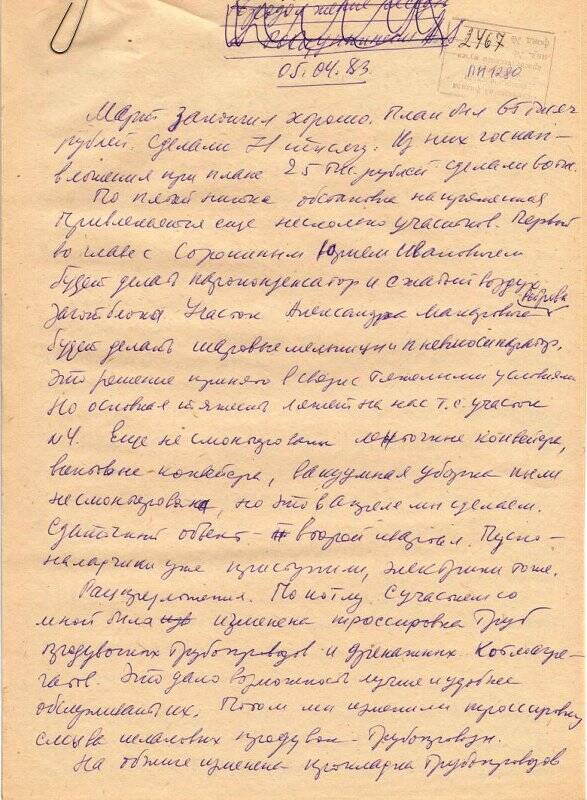 2467
ВП 1280
05.04.83
Март закончил хорошо. План был 65 тысяч
рублей. Сделали 71 тысячу. Из них госкап-
вложения при плане 25 тыс. рублей сделали
По пятой нитке обстановка напряженная
Привлекается еще несколько участков. Первый
во главе с Сорокиным Юрием Ивановичем
будет делать пароконденсатор и сжатый воздух
загот. блоки. Участок Александра Макаровича
будет делать шаровые мельницы и пневмосепаратор.
Это решение принято в связи с тяжелыми условиями
Но основная тяжесть ляжет на нас т.е. участок
№4. Еще не смонтировали ленточные конвейера,
винтовые конвейера, вакуумная уборка пыли
не смонтирована, но это в апреле мы сделаем.
Сдаточный объект - второй квартал. Пуско-
наладчики уже приступили, электрики тоже.
Рацпредложения. По котлу. С участием со
мной была изменена трассировка труб
продувочных трубопроводов и дренажных. Котлоагре-
гатов. Это дало возможность лучше и удобнее
обслуживать их. Потом мы изменили трассировку
слива шламовых продувок трубопровод.
На обжиге изменена прокладка трубопроводов